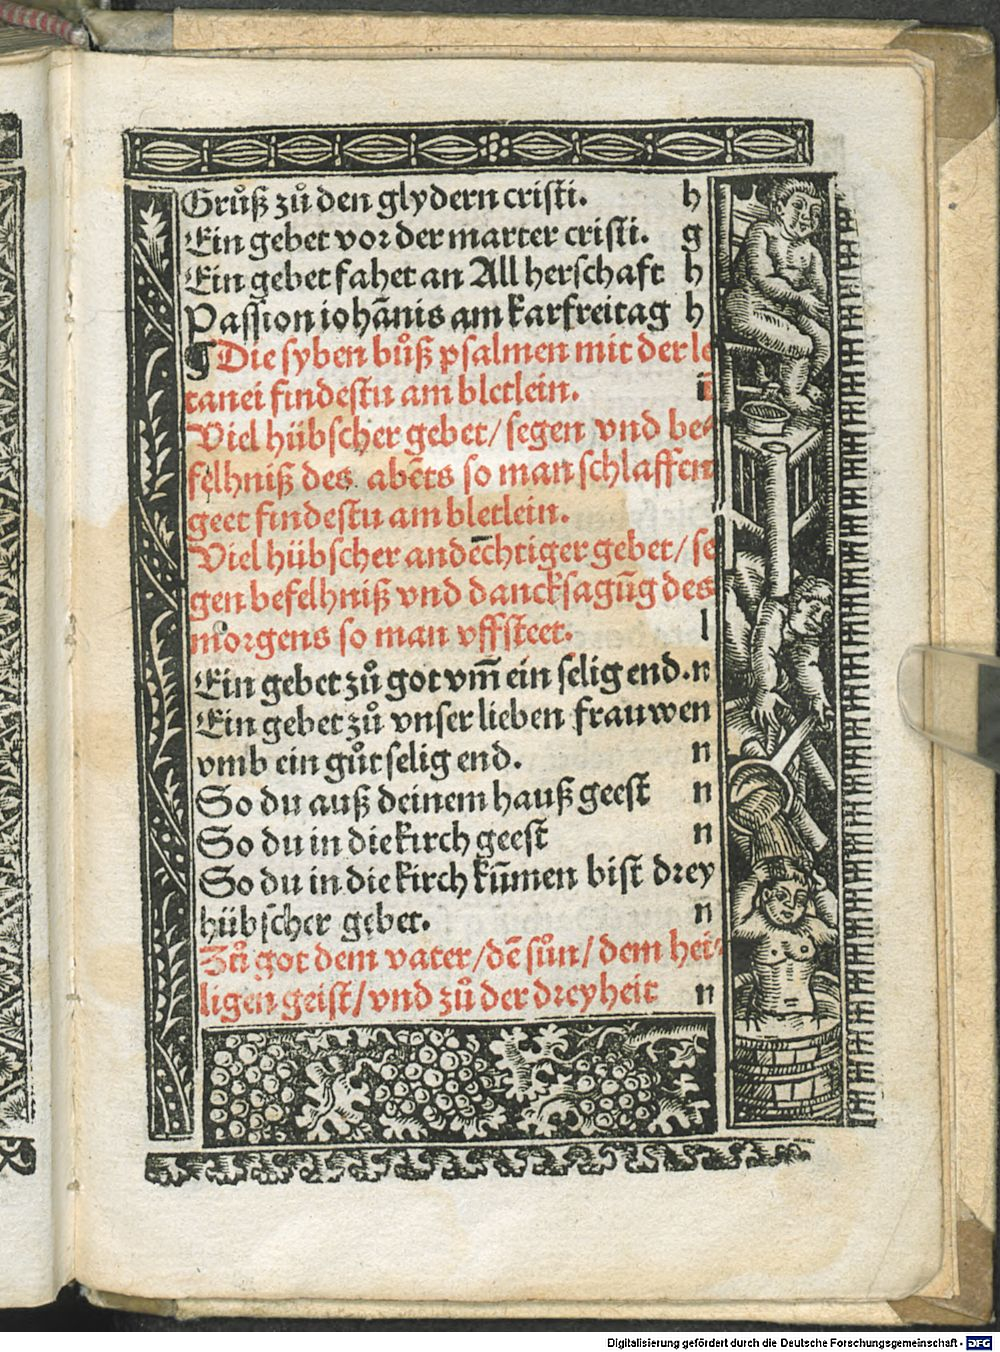 Gruͦß zuͦ den glydern cristi. h
Ein gebet vor der marter cristi. g
Ein gebet fahet an All herschaft h
Passion iohānis am karfreitag h
Die syben buͦß psalmen mit der le
tanei findestu am bletlein.
Viel hübscher gebet/ segen vnd be⸗
felhniß des abēts so man schlaffen
geet findestu am bletlein.
Viel hübscher andēchtiger gebet/ se
gen befelhniß vnd dancksagūg des
morgens so man vffsteet. l
Ein gebet zuͦ got vm̄ ein selig end. n
Ein gebet zuͦ vnser lieben frauwen
vmb ein guͦt selig end. n
So du auß deinem hauß geest n
So du in die kirch geest n
So du in die kirch kūmen bist drey
hübscher gebet. n
Zuͦ got dem vater/ dē suͦn/ dem hei⸗
ligen geist/ vnd zuͦ der dreyheit n
Digitalisierung gefördert durch die Deutsche Forschungsgemeinschaft - DFG